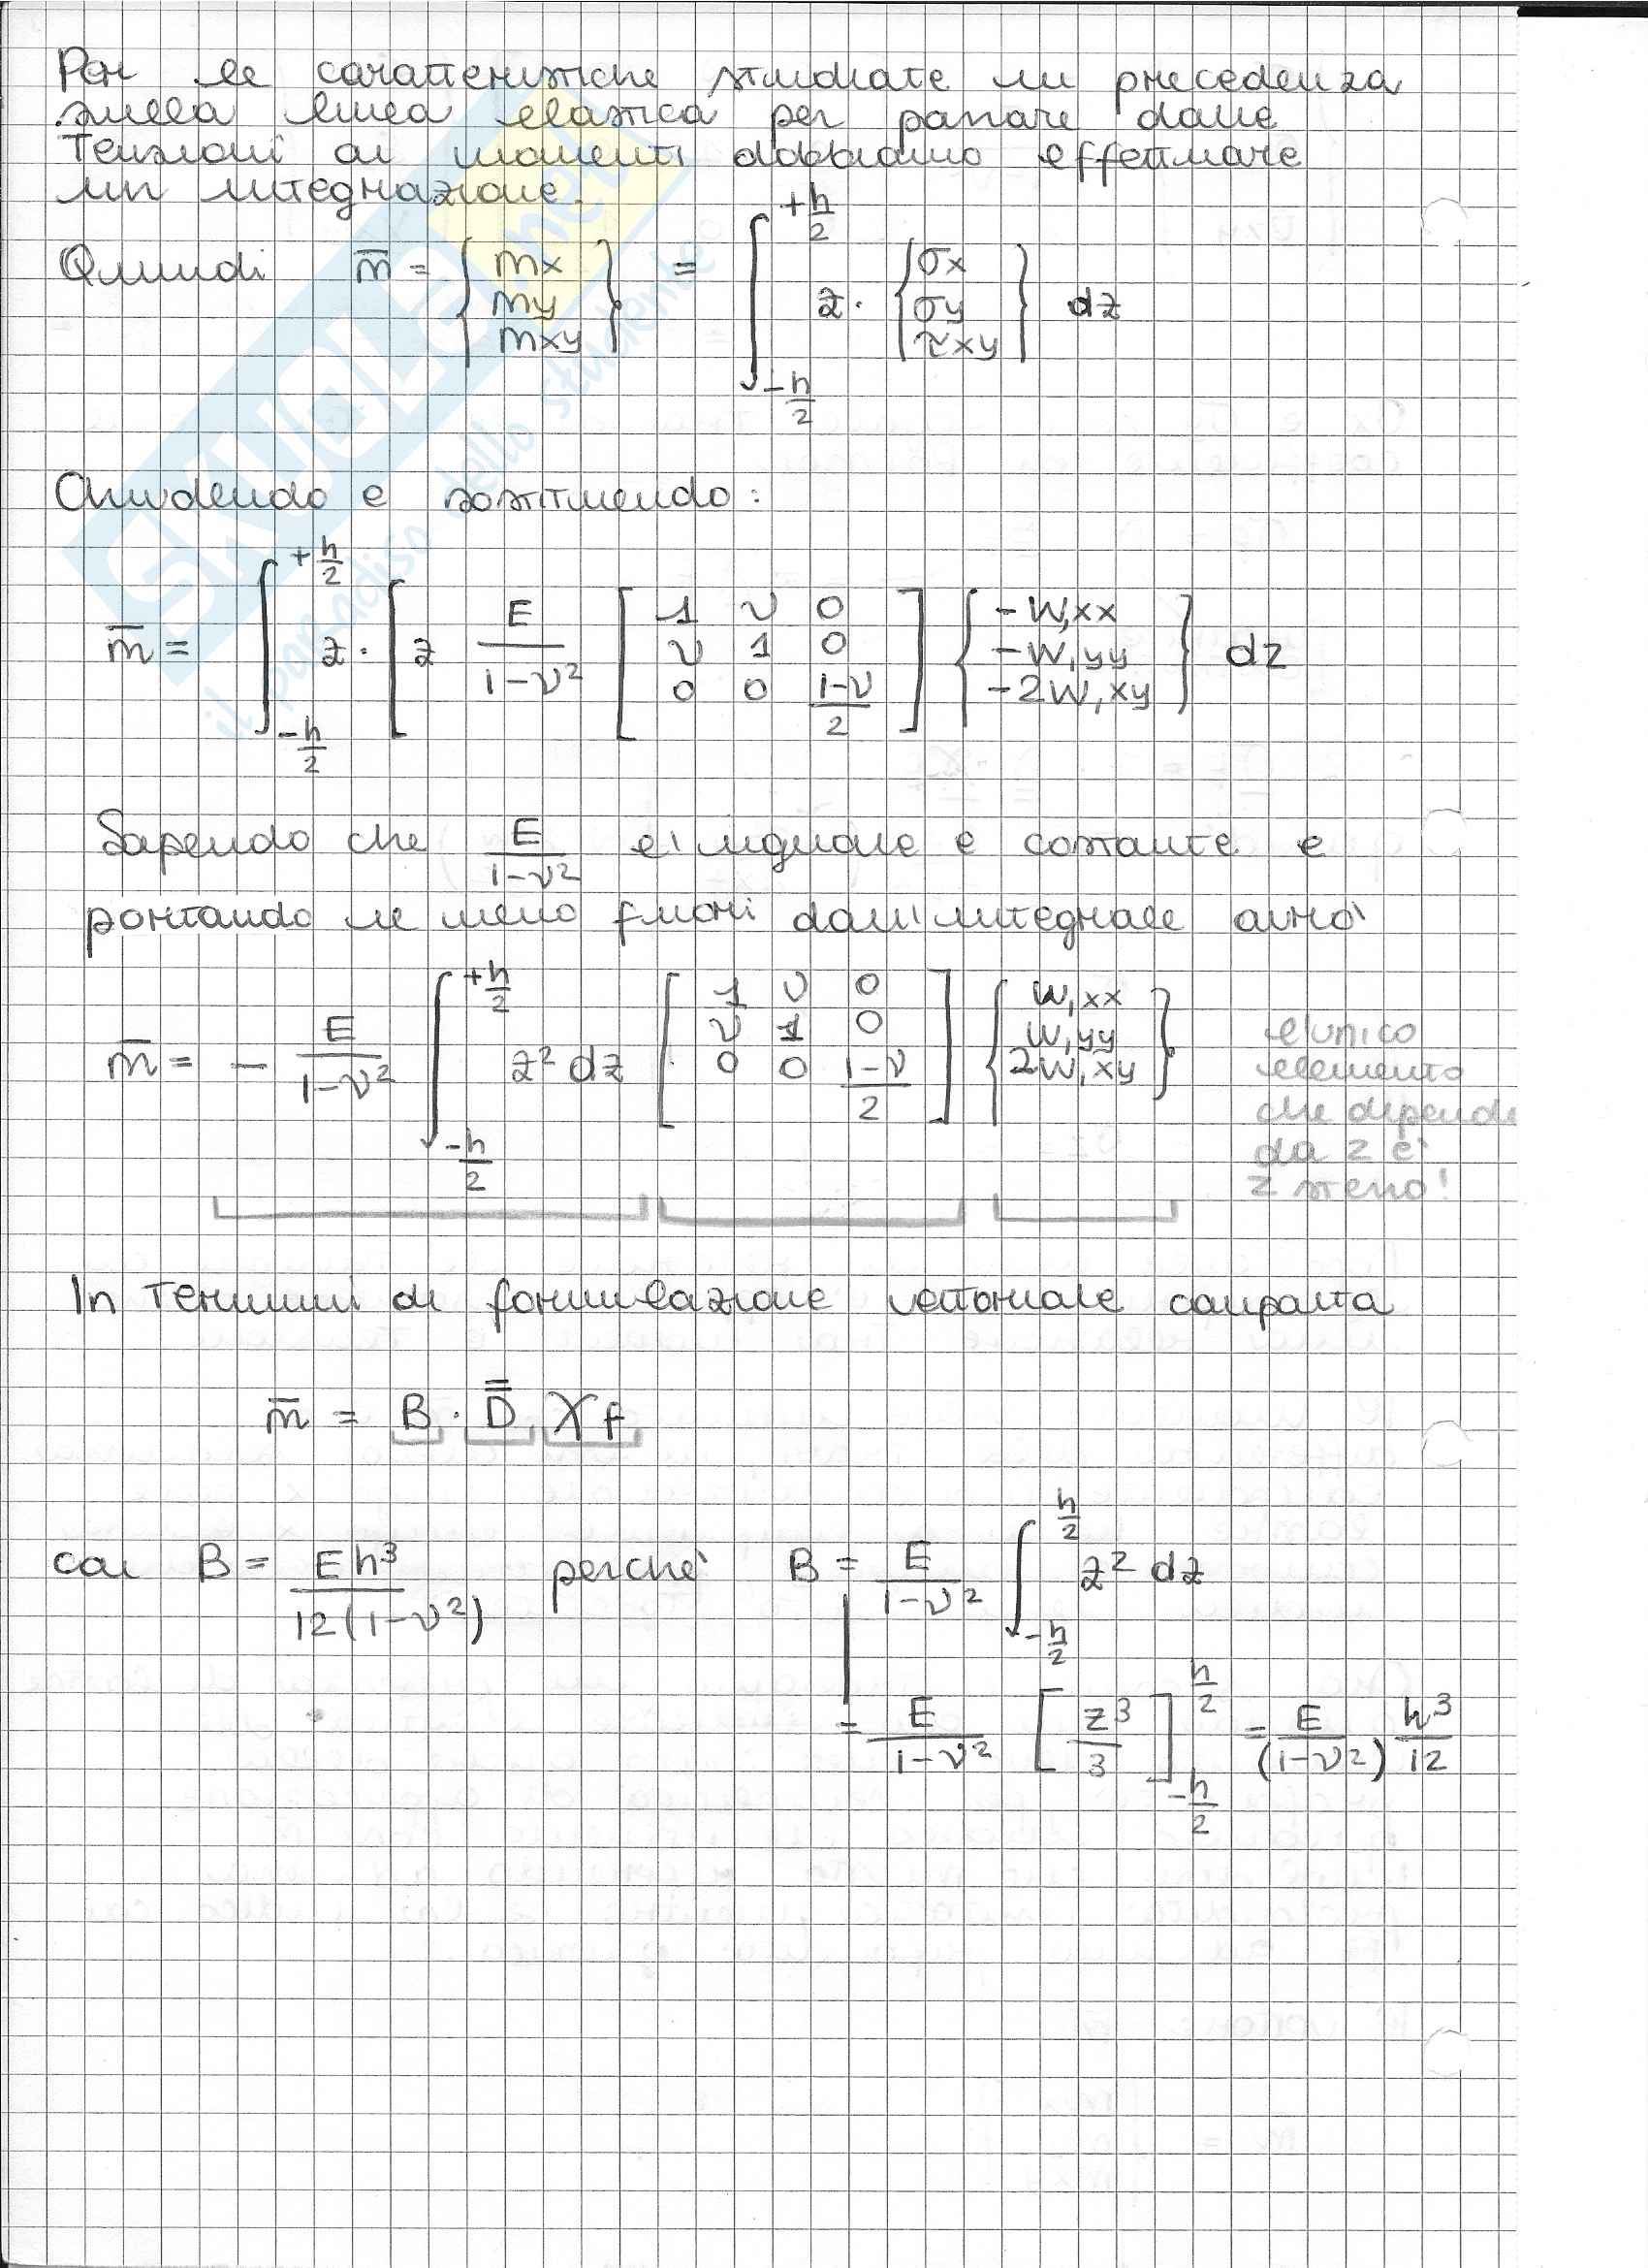 Per le caratteristiche studiate in precedenza
sulla linea elastica per passare dalle
Tensioni ai momenti dobbiamo effettuare
un integrazione.
Quindi m̅ = { mx my mxy } = ∫_{-h/2}^{+h/2} z · { σx σy τxy } dz
Chiudendo e sostituendo:
m̅ = ∫_{-h/2}^{+h/2} z · [ z E/(1-ν²) [ 1 ν 0 ; ν 1 0 ; 0 0 (1-ν)/2 ] { -w,xx -w,yy -2w,xy } dz
Sapendo che E/(1-ν²) e' uguale e costante e
portando il meno fuori dall'integrale avrò
m̅ = - E/(1-ν²) ∫_{-h/2}^{+h/2} z² dz [ 1 ν 0 ; ν 1 0 ; 0 0 (1-ν)/2 ] { w,xx w,yy 2w,xy }
l'unico
elemento
che dipende
da z e'
z stesso!
In Termini di formulazione vettoriale compatta
m̅ = B · D̿ χf
con B = Eh³/12(1-ν²) perche' B = E/(1-ν²) ∫_{-h/2}^{h/2} z² dz
= E/(1-ν²) [ z³/3 ]_{-h/2}^{h/2} = E/(1-ν²) h³/12
SKUOLA.net
il paradiso dello studente